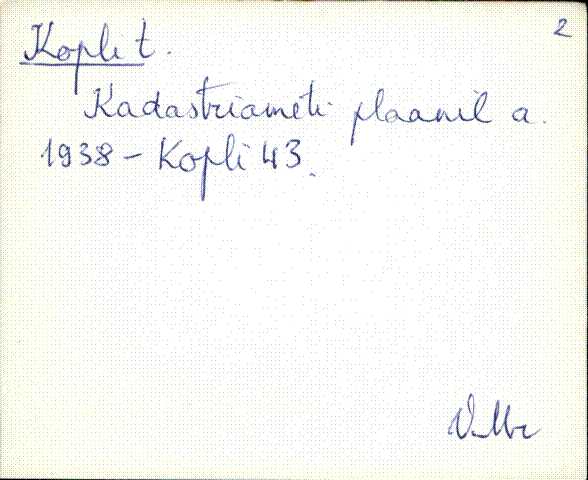 2
Kopli t.
Kadastriameti plaanil a.
1938 - Kopli 43.